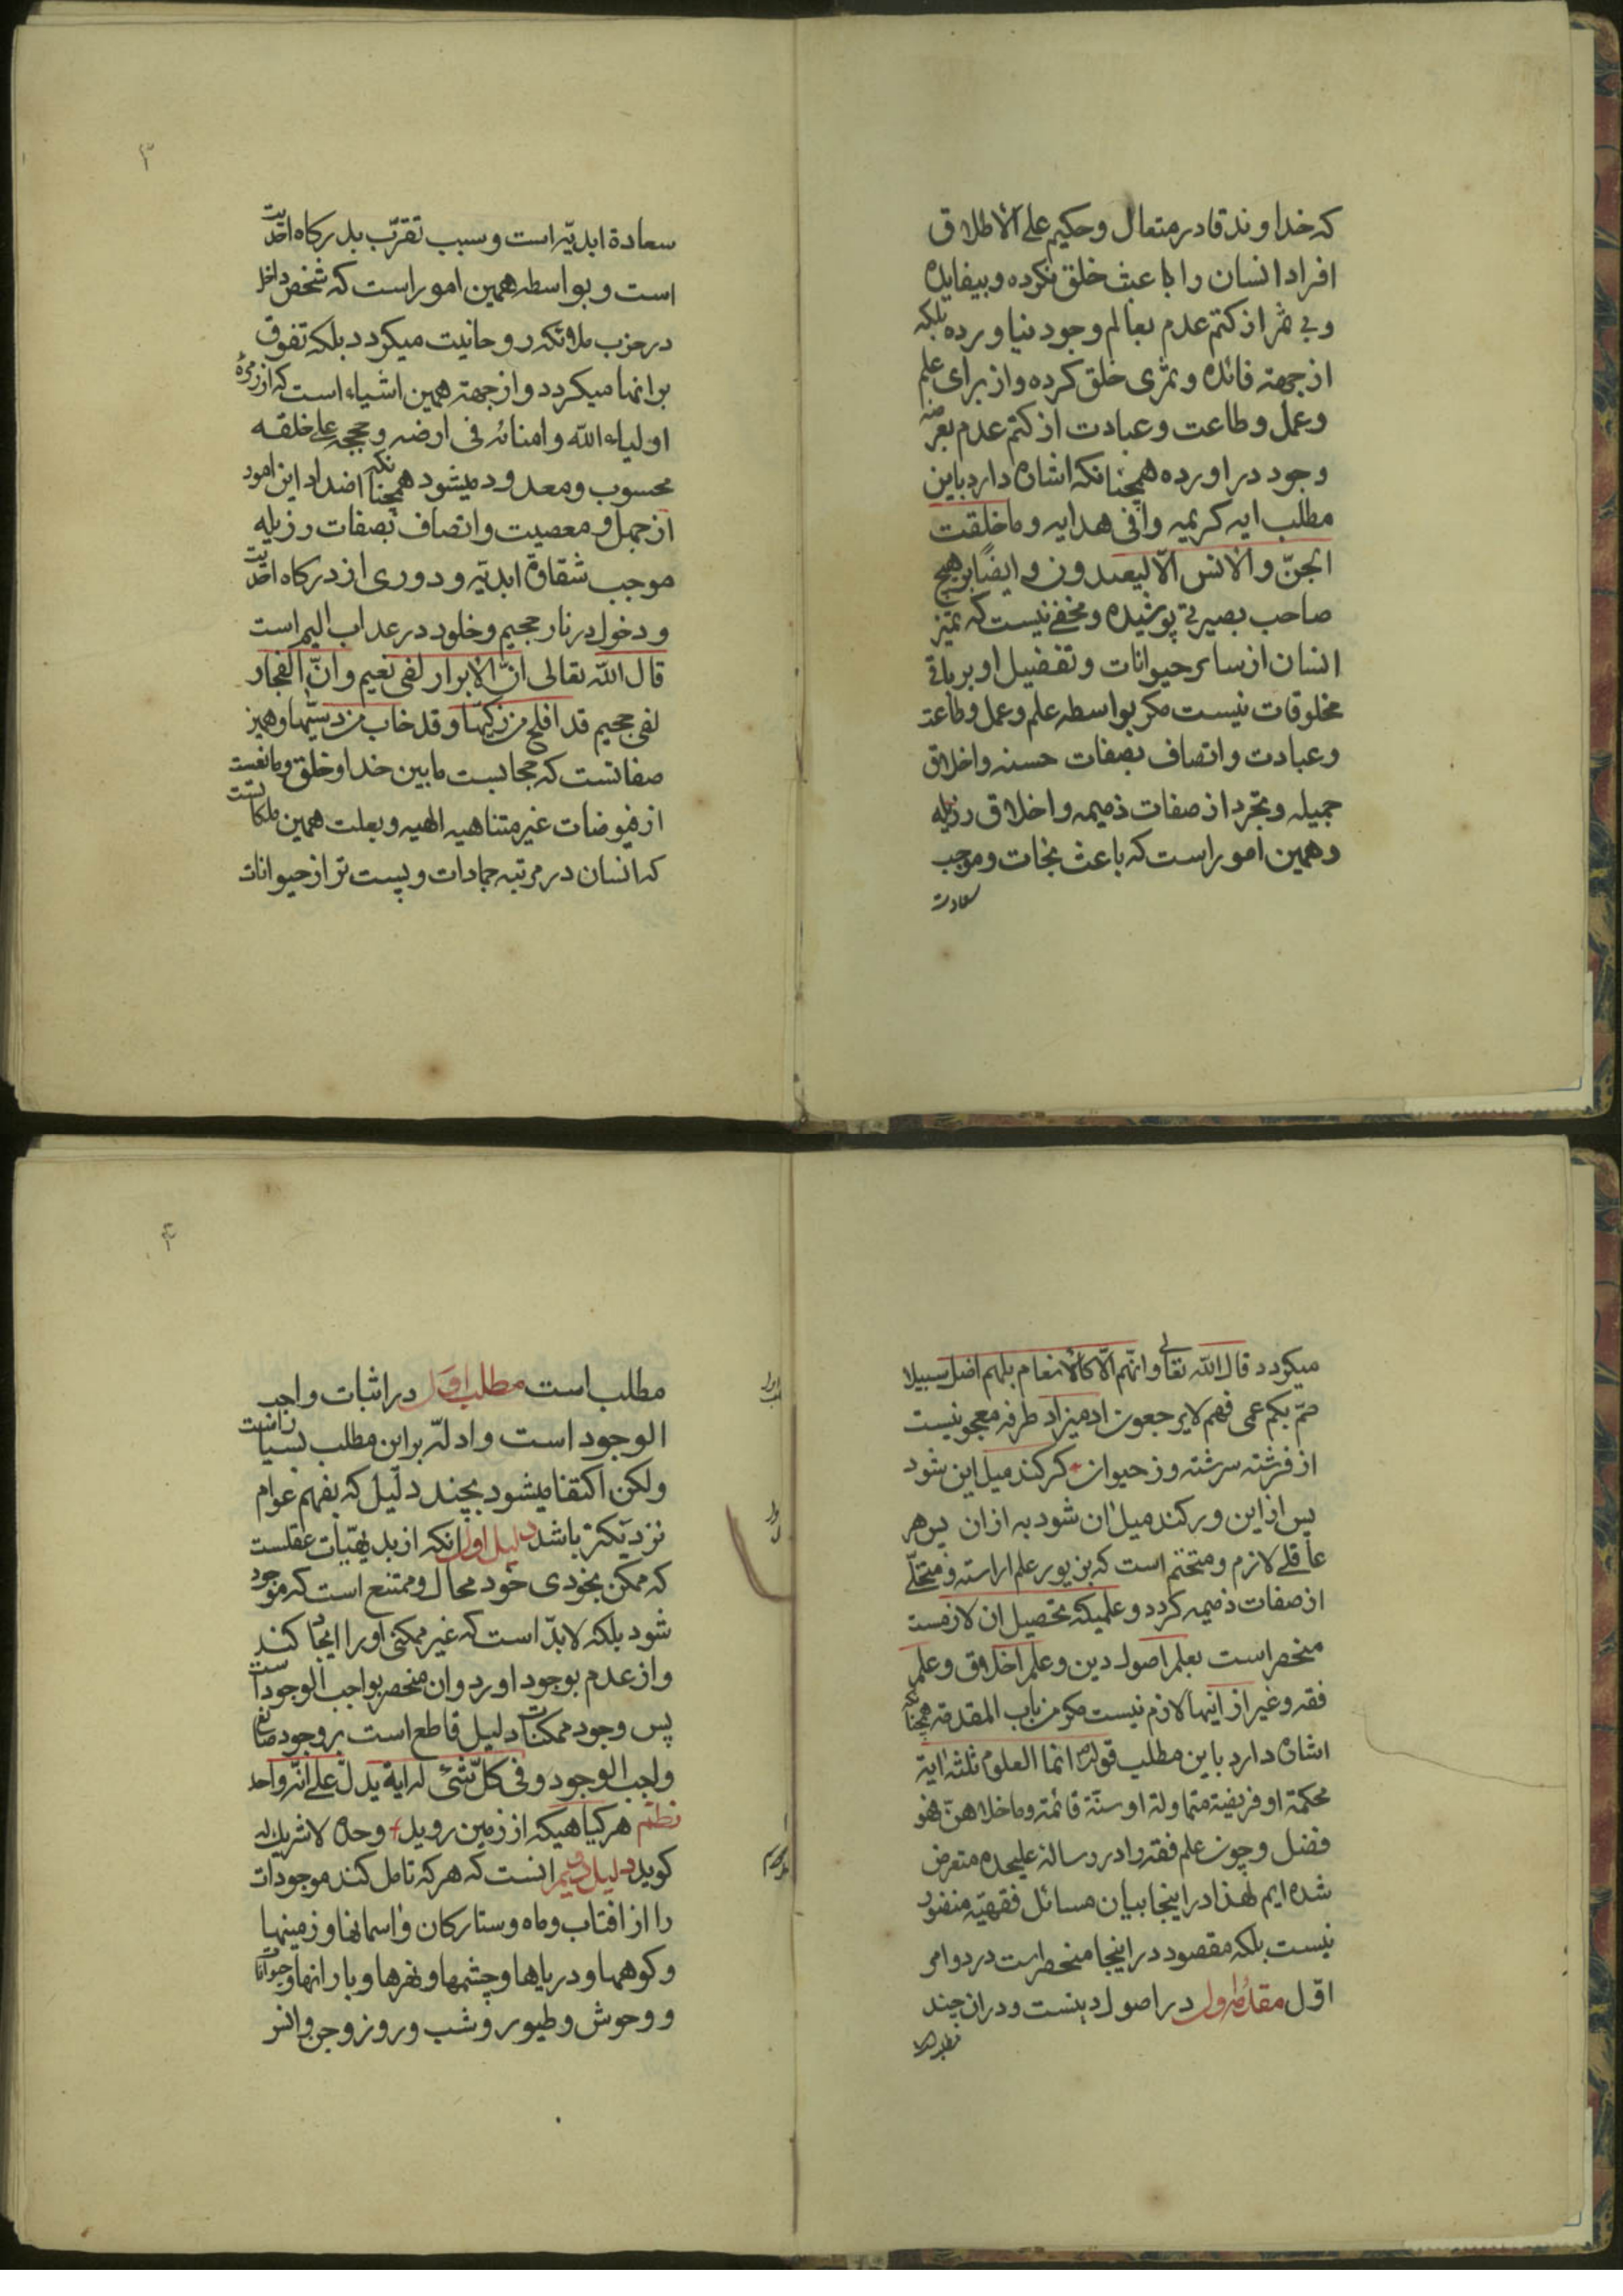 که خداوند قادر متعال و حکیم علی الاطلاق
افراد انسان را باعبث خلق نکرده و بیفایده
و بی ثمر از کتم عدم بعالم وجود نیاورده بلکه
از جهة فائده و ثمری خلق کرده و از برای علم
و عمل و طاعت و عبادت از کتم عدم بعرصه
وجود در اورده همچنانکه اشاره دارد باین
مطلب ایه کریمه وافی هدایه و ما خلقت
الجنّ و الانس الّا لیعبدون و ایضًا بر هیچ
صاحب بصیرتی پوشیده و مخفی نیست که تمیز
انسان از سایر حیوانات و تفضیل او بر باقی
مخلوقات نیست مکر بواسطه علم و عمل و طاعة
و عبادت و اتصاف بصفات حسنه و اخلاق
جمیله و تجرد از صفات ذمیمه و اخلاق رزیله
و همین امور است که باعث نجات و موجب
سعادت
۳
سعادة ابدیّه است و سبب تقرّب بدرکاه احدیت
است و بواسطه همین امور است که شخص داخل
در حزب ملائکه روحانیت میکردد بلکه تفوق
بر انها میکردد و از جهة همین اشیاء است که از زمرۀ
اولیاء الله و امنائه فی ارضه و حججه علی خلقه
محسوب و معدود میشود همچنانکه اضداد این امور
از جهل و معصیت و اتصاف بصفات رزیله
موجب شقاوة ابدیّه و دوری از درکاه احدیت
و دخول در نار جحیم و خلود در عذاب الیم است
قال الله تعالی انّ الابرار لفی نعیم و انّ الفجار
لفی جحیم قد افلح من زکیّها و قد خاب من دسّیها و همین
صفاتست که حجابست ما بین خدا و خلق و مانعست
از فیوضات غیر متناهیه الهیه و بعلت همین ملکاتست
که انسان در مرتبه جمادات و پست تر از حیوانات
میکردد قال الله تعالی و انّهم الّا کالانعام بل هم اضل سبیلا
صمّ بکم عمی فهم لایرجعون ادمیزاد طرفه معجونیست
از فرشته سرشته وز حیوان کر کند میل این شود
پس از این ور کند میل ان شود به از ان پس هر
عاقلی لازم و متحتم است که بزیور علم اراسته و متحلّی
از صفات ذمیمه کردد و علمیکه تحصیل ان لازمست
منحصر است بعلم اصول دین و علم اخلاق و علم
فقه و غیر از اینها لازم نیست مکر من باب المقدمه همچنانکه
اشاره دارد باین مطلب قوله انما العلوم ثلثه ایة
محکمة او فریضة متماولة او سنّة قائمة و ما خلا هنّ فهو
فضل و چون علم فقه را در رسالۀ علیحده متعرض
شده ایم لهذا در اینجا بیان مسائل فقهیّه منضود
نیست بلکه مقصود در اینجا منحصر است در دو امر
اوّل مقدمۀ اول در اصول دینست و در ان چند
۴
مطلب است مطلب اوّل در اثبات واجب
الوجود است و ادلّه بر این مطلب بسیار است
ولکن اکتفا میشود بچند دلیل که بفهم عوام
نزدیکتر باشد دلیل اول انکه از بدیهیّات عقلست
که ممکن بخودی خود محال و ممتنع است که موجود
شود بلکه لابدّ است که غیر ممکنی او را ایجاد کند
و از عدم بوجود اورد و ان منحصر بواجب الوجود است
پس وجود ممکنات دلیل قاطع است بر وجود صانع
واجب الوجود و فی کلّ شیء له ایة یدلّ علی انّه واحد
نظم هر کیاهیکه از زمین روید وحده لا شریک له
کوید دلیل دویم انست که هر که تامل کند موجودات
را از افتاب و ماه و ستارکان و اسمانها و زمینها
و کوهها و دریاها و چشمها و نهرها و بارانها و حیوانات
و وحوش و طیور و شب و روز و جن و انس